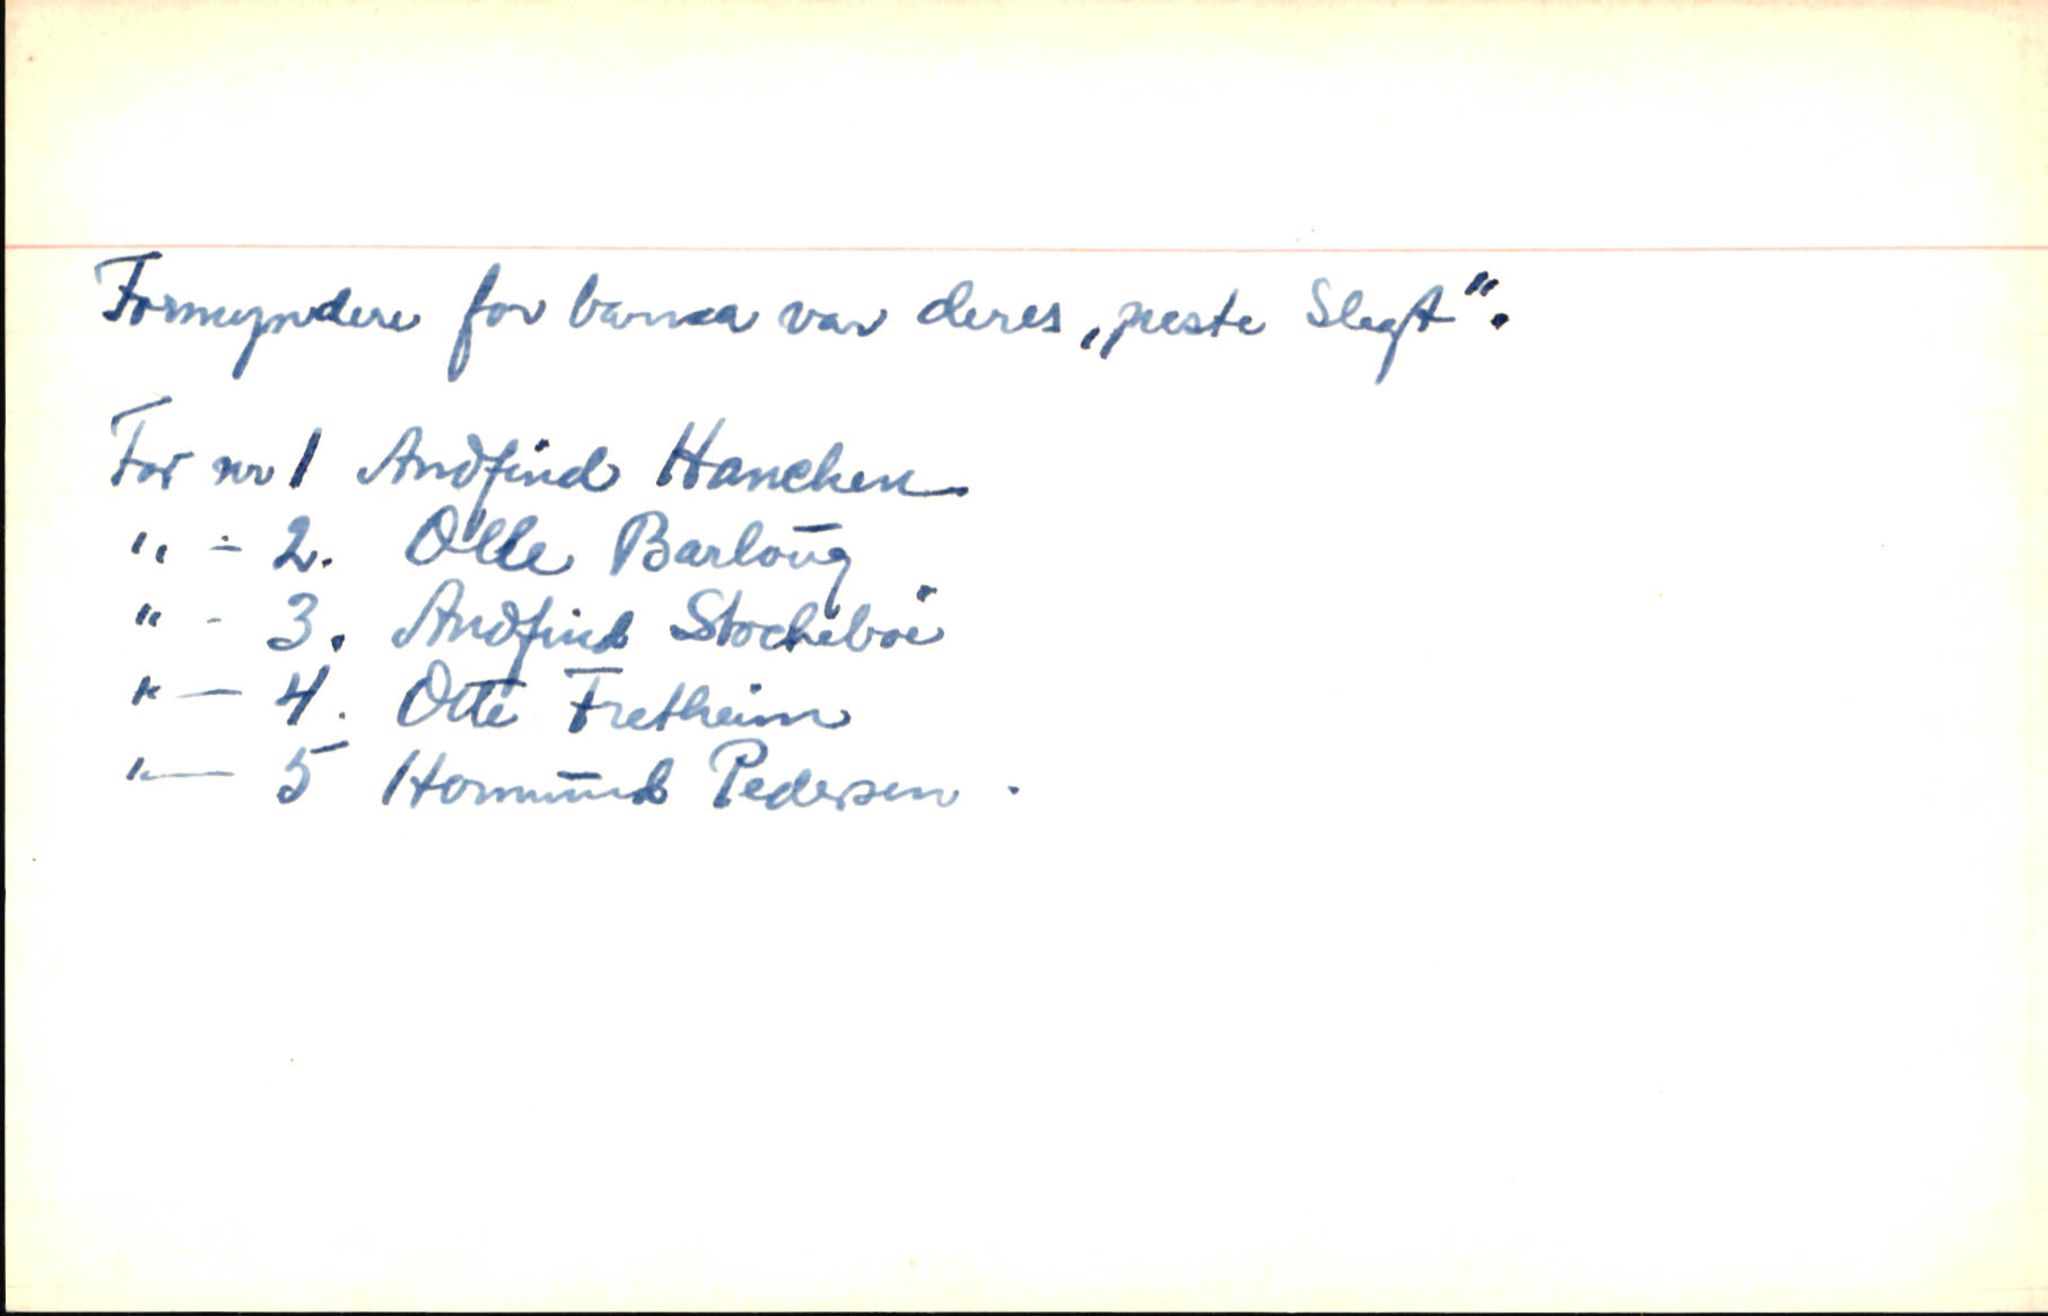 Formyndere for barna var deres „neste Slegt“.
For nr 1 Andfind Hanchen
" - 2. Olle Barloug
" - 3. Andfind Stocheboe
" - 4. Otte Fretheim
" - 5 Hormund Pedersen.